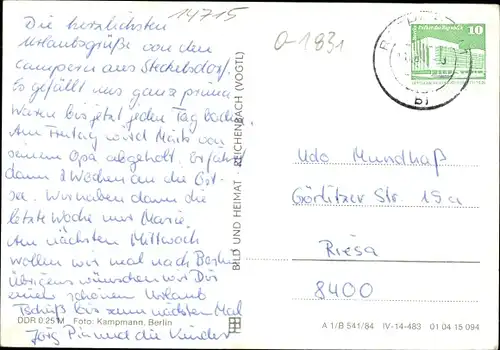 14715
0-1831
Die herzlichsten
Urlaubsgrüße von den
Campern aus Steckelsdorf.
Es gefällt uns ganz prima
Waren bis jetzt jeden Tag baden.
Am Freitag wird Mario von
seinem Opa abgeholt. Er fährt
dann 2 Wochen an die Ost-
see. Wir haben dann die
letzte Woche nur Marie.
Am nächsten Mittwoch
wollen wir mal nach Berlin
übrigens wünschen wir Dir
einen schönen Urlaub
Tschüß bis zum nächsten Mal
Jörg und die Kinder
DDR 0,25 M Foto: Kampmann, Berlin
BILD UND HEIMAT · REICHENBACH (VOGTL)
10
b1
Udo Mundhaß
Görlitzer Str. 15a
Riesa
8400
A 1/B 541/84 IV-14-483 01 04 15 094